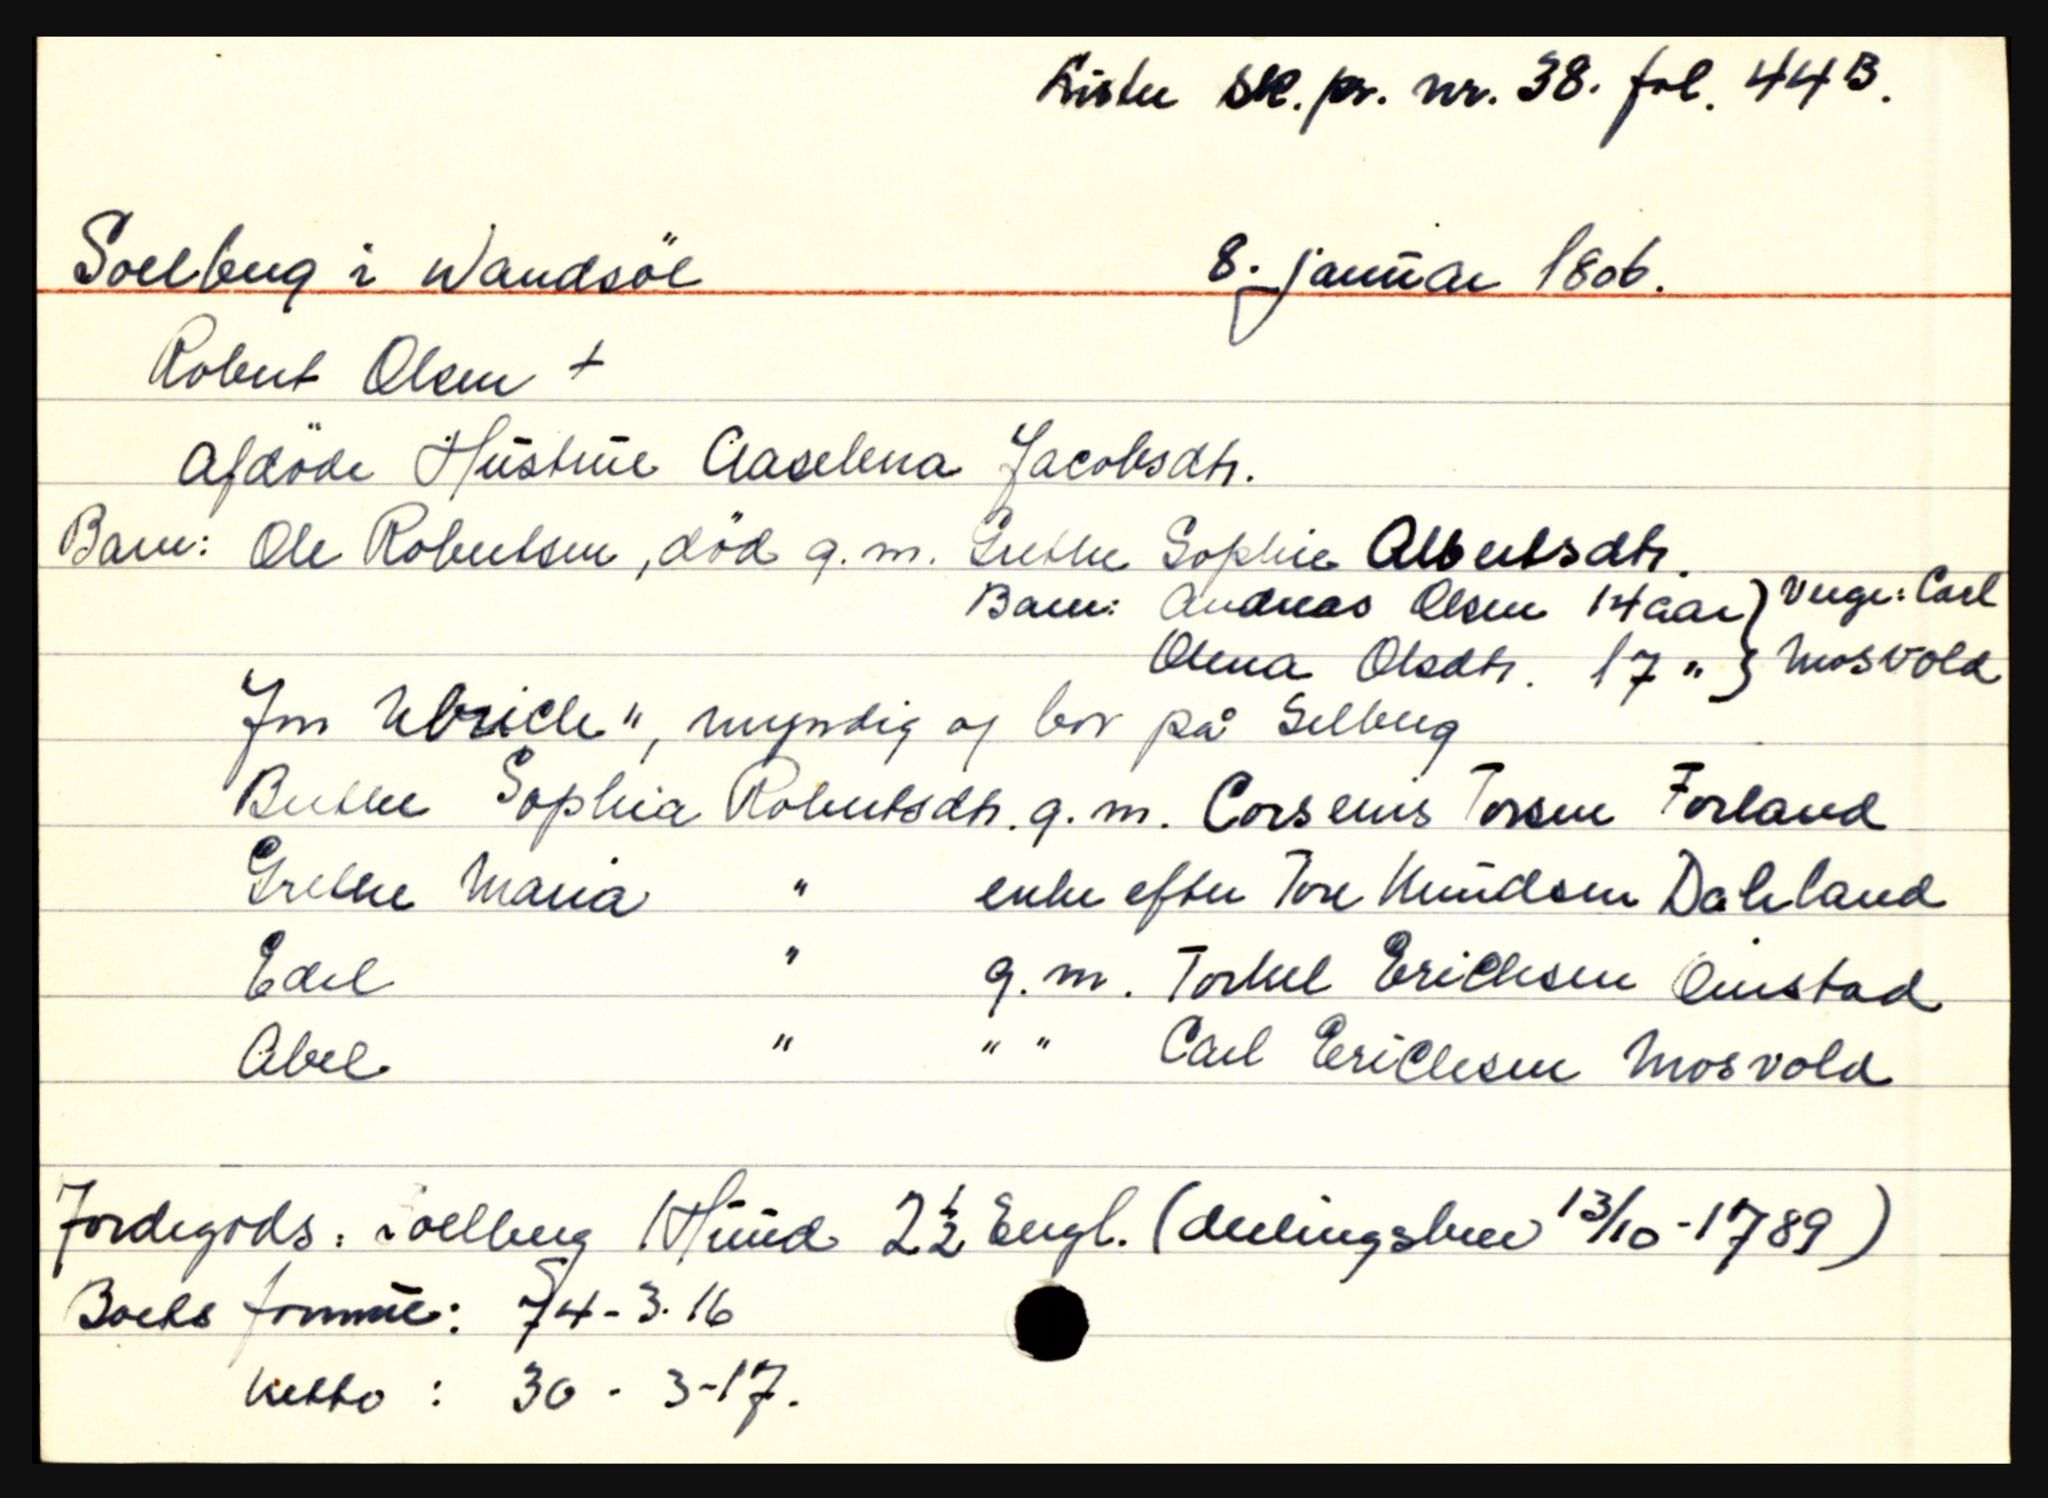 Lister Sk. pr. nr. 38. fol. 44B.
Soelberg i Wandsöe 8. januar 1806.
Robert Olsen +
afdöde Hustrue Aaselena Jacobsdtr.
Barn: Ole Robertsen, död g. m. Grethe Sophie Albertsdtr.
Barn: Andreas Olsen 14 aar } Verge: Carl
Olena Olsdtr. 17 " } Mosvold
Jon Ulrich ", myndig og bor på Selberg
Berthe Sophia Robertsdtr. g. m. Corsenis Torsen Forland
Grethe Maria " enke efter Tore Knudsen Dahland
Edel " g. m. Torkel Erichsen Omstad
Abel " " " Carl Erichsen Mosvold
Jordegods: Soelberg 1 Huud 2 1/2 Engl. (deelingsbrev 13/10-1789)
Boets formue: 74-3.16
netto: 30 - 3-17.